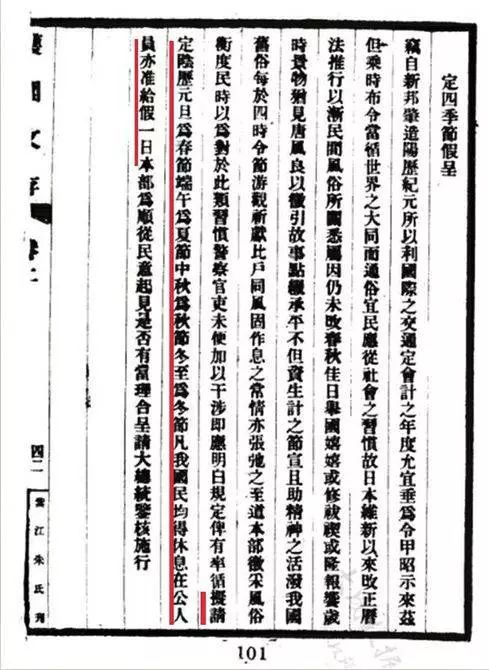 定四季節假呈
竊自新邦肇造陽歷紀元所以利國際之交通定會計之年度允宜垂爲令甲昭示來茲
但乘時布令當循世界之大同而通俗宜民應從社會之習慣故日本維新以來改正曆
法推行以漸民間風俗所關悉屬因仍未改春秋佳日舉國嬉嬉或修祓禊或隆報饗歲
時景物猶見唐風良以徵引故事點綴承平不但資生計之節宣且助精神之活發我國
舊俗每於四時令節游觀祈獻比戶同風固作息之常情亦張弛之至道本部徵采風俗
衡度民時以爲對於此類習慣警察官吏未便加以干涉即應明白規定俾有率循擬請
定陰歷元旦爲春節端午爲夏節中秋爲秋節冬至爲冬節凡我國民均得休息在公人
員亦准給假一日本部爲順從民意起見是否有當理合呈請大總統鑒核施行
蠖園文存 卷二
四二
紫江朱氏刊
101